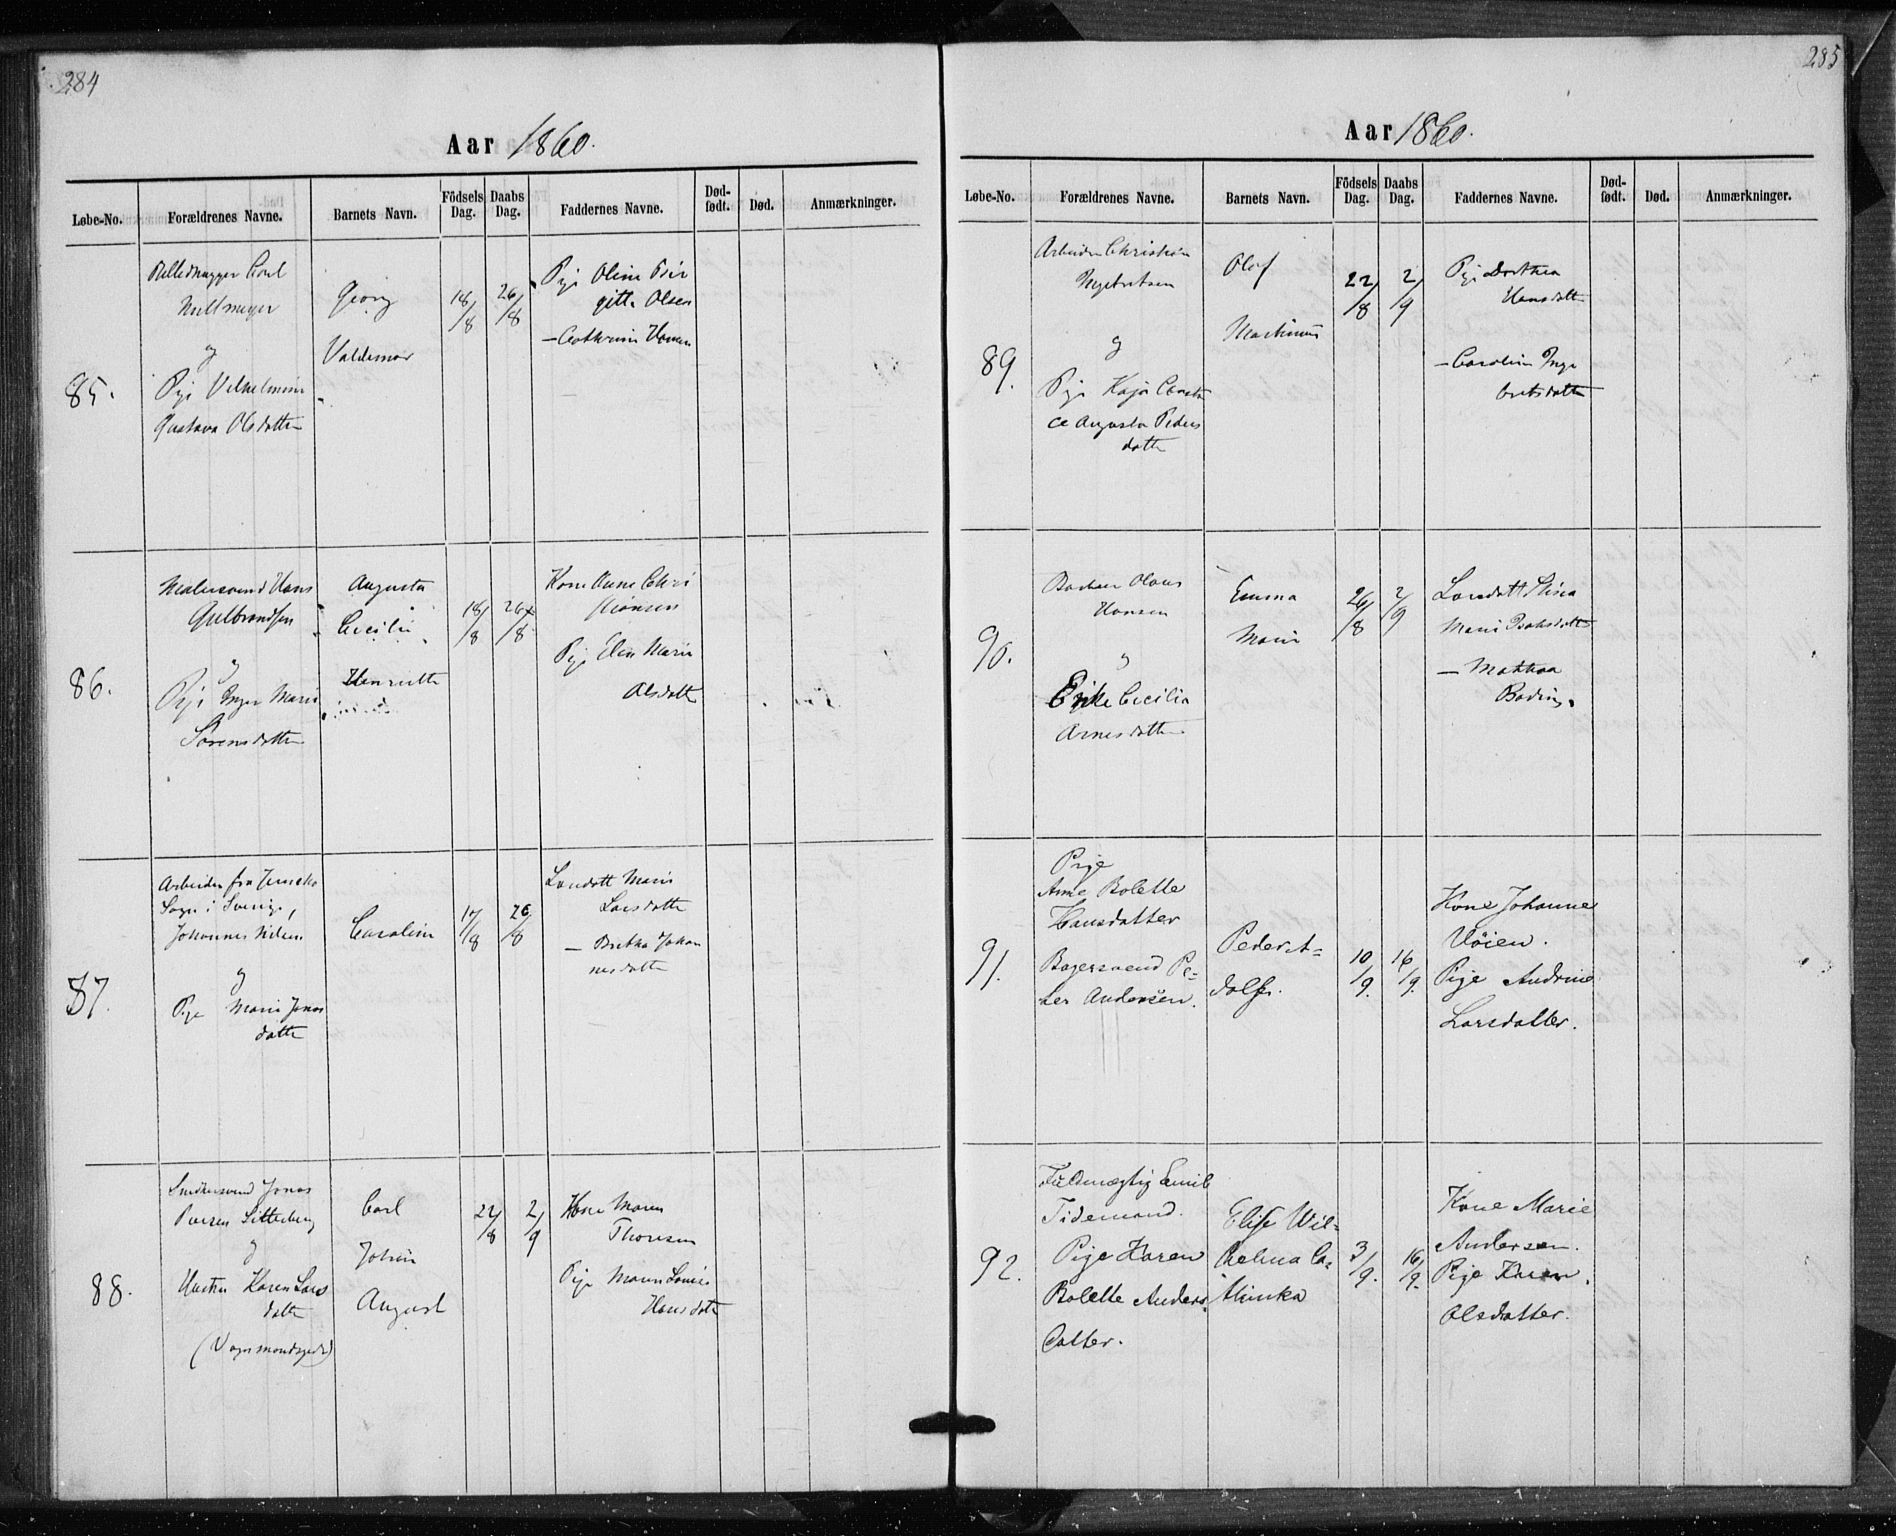 284
Aar 1860.
Løbe-No.
Forældrenes Navne.
Barnets Navn.
Födsels Dag.
Daabs Dag.
Faddernes Navne.
Død-født.
Død.
Anmærkninger.
85.
Billedhugger Carl
og
Pige Vilhelmine
Gustava Olsdatter
Georg
Valdemar
18/8
26/8
Pige Oline Bir
gitte Olsen
– Cathrine Hansen
86.
Malersvend Hans
Gulbrandsen
og
Pige Inger Marie
Sørensdatter
Augusta
Cecilie
Henriette
18/8
26/8
Kone Anne Chri
stiansen
Pige Elen Marie
Olsdatter
87.
Arbeider fra
Sogn i Sverige,
Johannes Nilsen
og
Pige Maria Jonas
datter
Caroline
17/8
26/8
Londatt Maria
Larsdatter
– Britha Johan
nesdatter
88.
Snedkersvend Jonas
og
Hustru Karen Lars
datter
Carl
Johan
August
22/8
2/9
Kone Maren
Thoresen
Pige Maren Lovise
Hansdatter
285
Aar 1860.
Løbe-No.
Forældrenes Navne.
Barnets Navn.
Födsels Dag.
Daabs Dag.
Faddernes Navne.
Død-født.
Død.
Anmærkninger.
89.
Arbeider Christian
Ingebretsen
og
Pige Kaja Constan
ce Augusta Peders
datter
Olaf
Martinus
22/8
2/9
Pige Dorthea
Hansdatter
– Caroline Inge
bretsdatter
90.
Olaus
Hansen
og
Cecilia
Arnesdatter
Emma
Marie
26/8
2/9
Londatt Stina
Maria
– Mathea
91.
Pige
Anne Bolette
Hansdatter
Bagersvend Pe-
ter Andersen.
Peder A-
dolf.
10/9.
16/9.
Kone Johanne
Vøien.
Pige Andrine
Larsdatter.
92.
Fuldmægtig Emil
Tidemand.
Pige Karen
Bolette Anders-
datter.
Elise Wil-
helmine Ca-
thinka
3/9.
16/9.
Kone Marie
Andersen.
Pige Karen
Olsdatter.